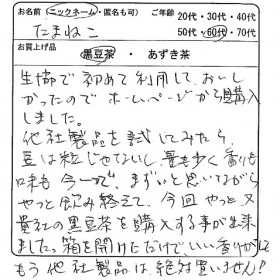 お名前（ニックネーム・匿名も可）　ご年齢　20代・30代・40代
たまねこ　50代・60代・70代
お買上げ品　黒豆茶　・　あずき茶
生協で初めて利用して、おいし
かったのでホームページから購入
しました。
他社製品を試してみたら、
豆は粒じゃないし、量も少く香りも
味も今一つで、まずいと思いながら
やっと飲み終えて、今回やっと又
貴社の黒豆茶を購入する事が出来
ました。箱を開けただけで、いい香りが
もう他社製品は、絶対買いません！